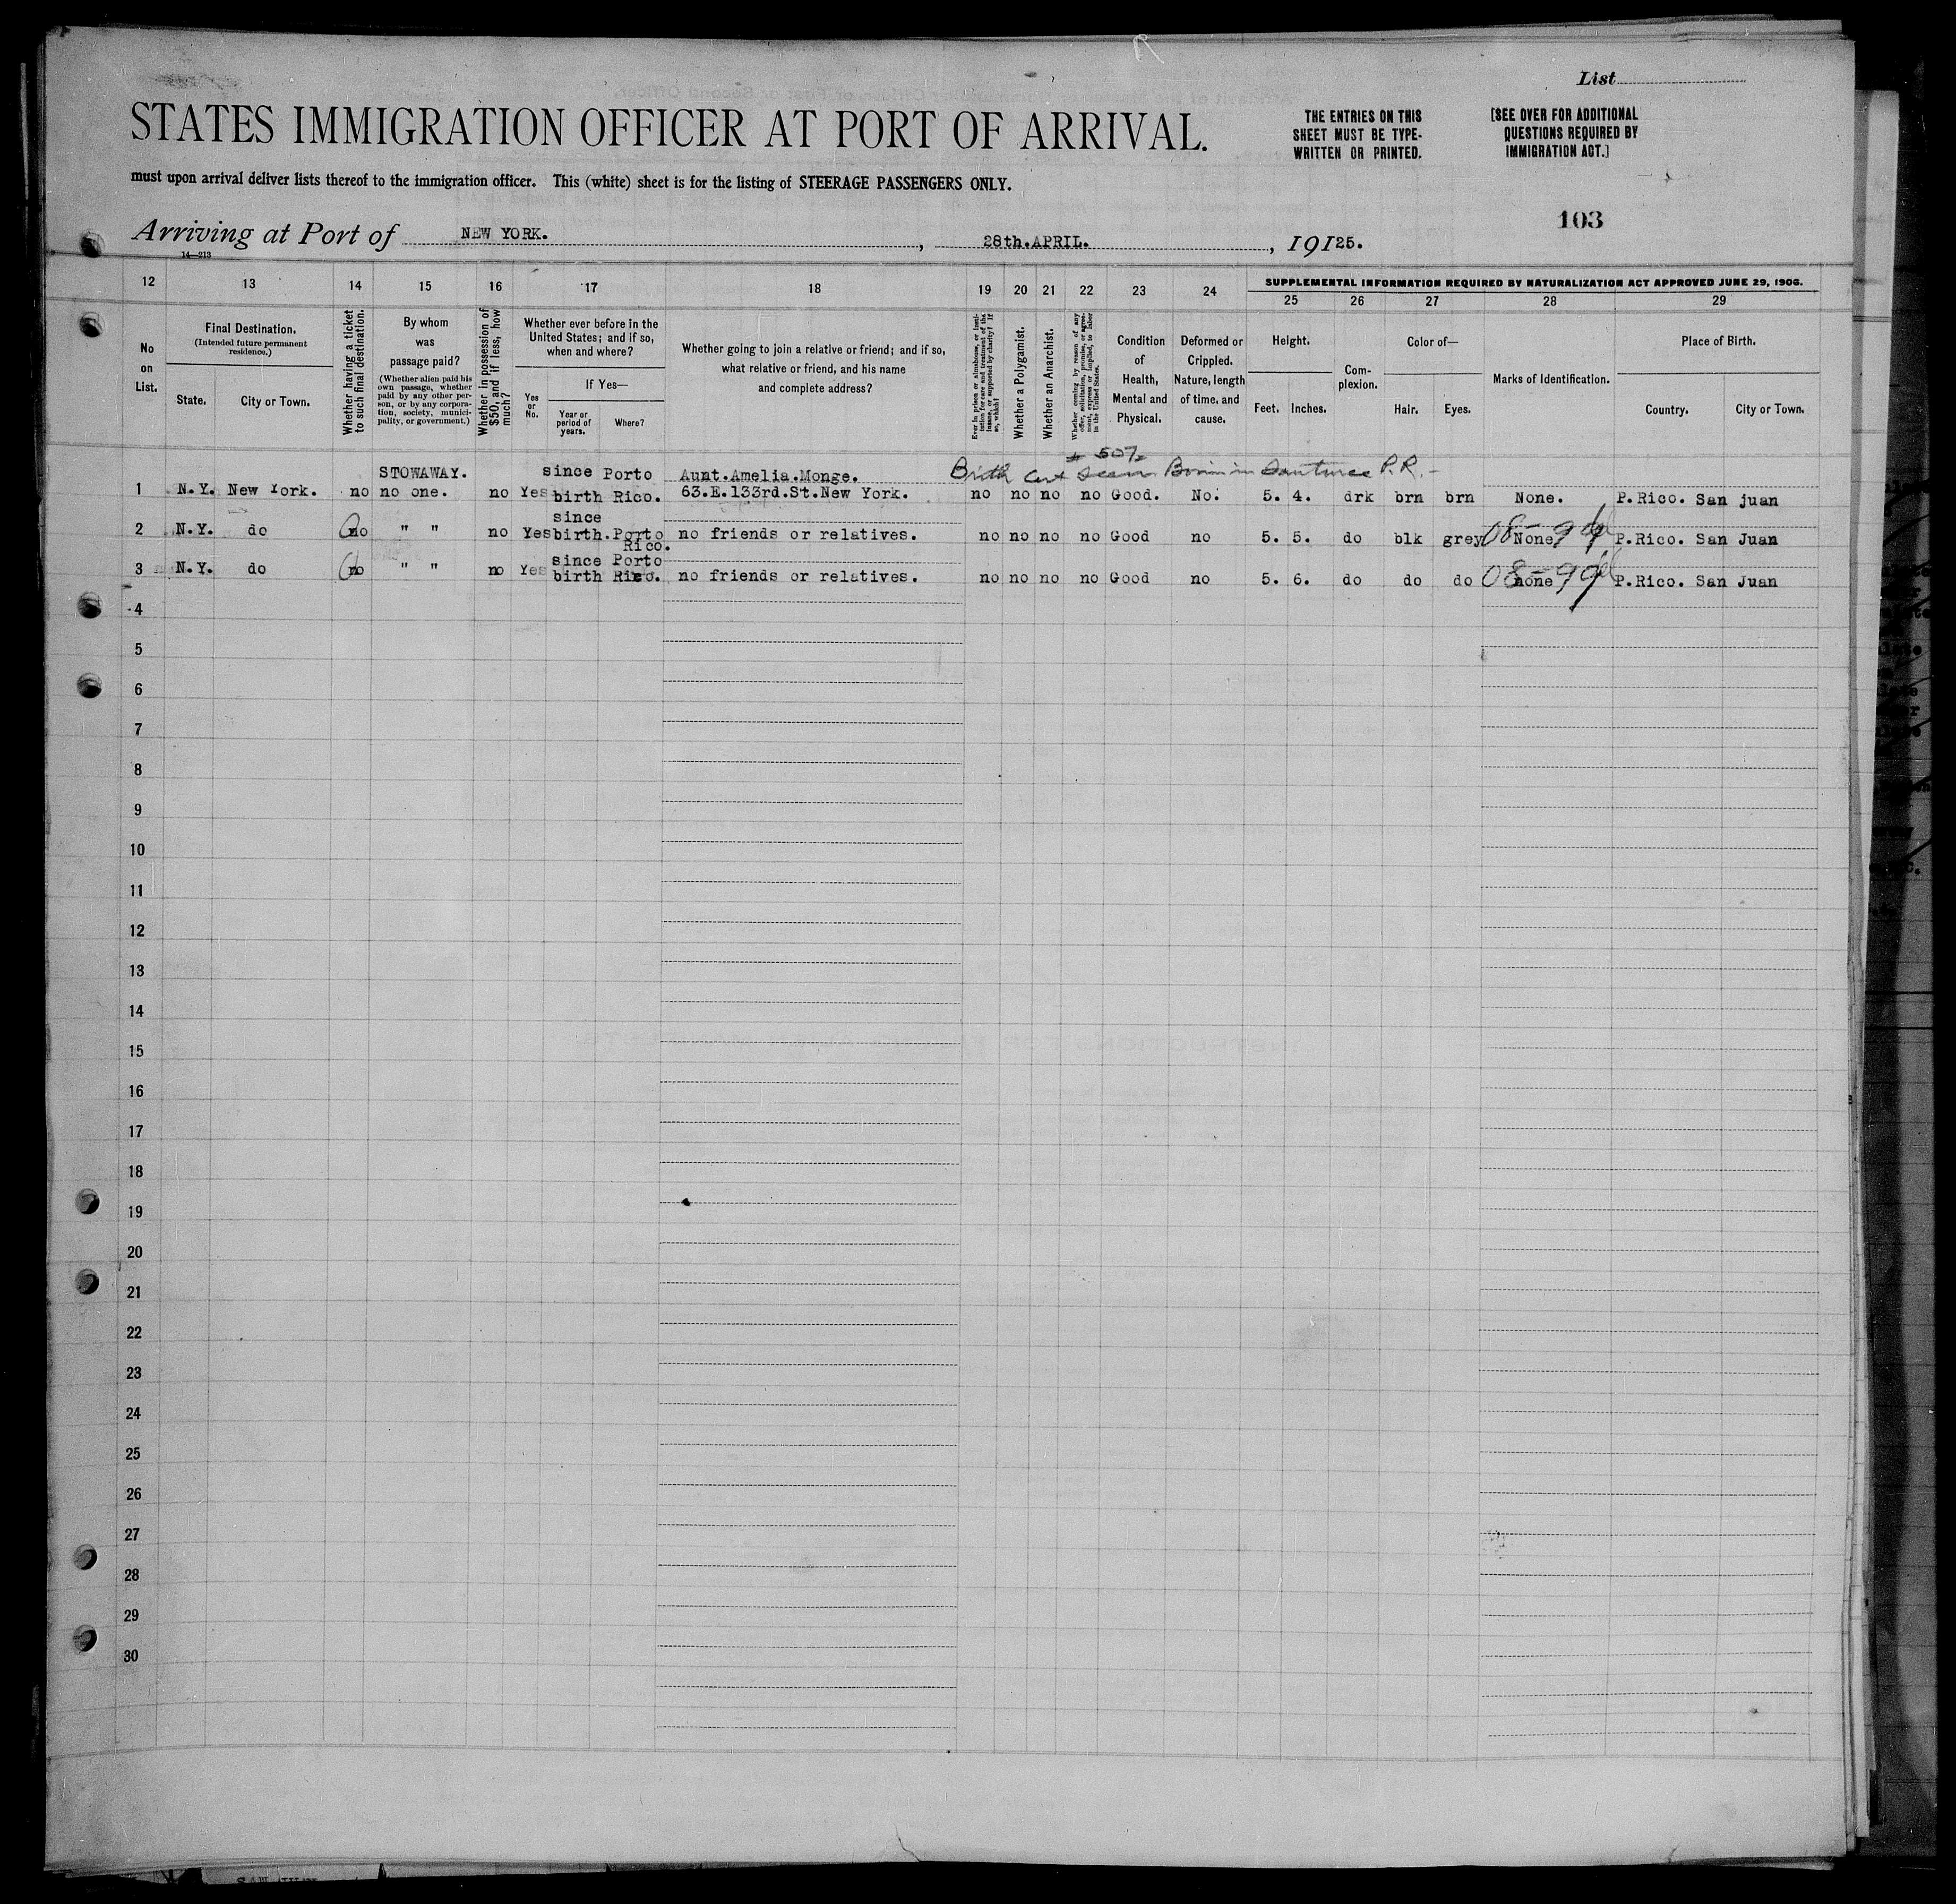 List
STATES IMMIGRATION OFFICER AT PORT OF ARRIVAL.
THE ENTRIES ON THIS
SHEET MUST BE TYPE-
WRITTEN OR PRINTED.
[SEE OVER FOR ADDITIONAL
QUESTIONS REQUIRED BY
IMMIGRATION ACT.]
must upon arrival deliver lists thereof to the immigration officer. This (white) sheet is for the listing of STEERAGE PASSENGERS ONLY.
103
Arriving at Port of NEW YORK. , 28th.APRIL. , 19125.
14—213
12 13 14 15 16 17 18 19 20 21 22 23 24
SUPPLEMENTAL INFORMATION REQUIRED BY NATURALIZATION ACT APPROVED JUNE 29, 1906.
25 26 27 28 29
No
on
List.
Final Destination.
(Intended future permanent
residence.)
State.
City or Town.
Whether having a ticket
to such final destination.
By whom
was
passage paid?
(Whether alien paid his
own passage, whether
paid by any other per-
son, or by any corpora-
tion, society, munici-
pality, or government.)
Whether in possession of
$50, and if less, how
much?
Whether ever before in the
United States; and if so,
when and where?
If Yes—
Yes
or
No.
Year or
period of
years.
Where?
Whether going to join a relative or friend; and if so,
what relative or friend, and his name
and complete address?
Ever in prison or almshouse, or insti-
tution for care and treatment of the
insane, or supported by charity? If
so, which?
Whether a Polygamist.
Whether an Anarchist.
Whether coming by reason of any
offer, solicitation, promise, or agree-
ment, express or implied, to labor
in the United States.
Condition
of
Health,
Mental and
Physical.
Deformed or
Crippled.
Nature, length
of time, and
cause.
Height.
Feet. Inches.
Com-
plexion.
Color of—
Hair. Eyes.
Marks of Identification.
Place of Birth.
Country. City or Town.
STOWAWAY. since Porto Aunt.Amelia.Monge. Birth Cert Seen Born in Santurce P.R.
1 N.Y. New York. no no one. no Yes birth Rico. 63.E.133rd.St.New York. no no no no Good. No. 5. 4. drk brn brn None. P.Rico. San juan
since
2 N.Y. do no " " no Yes birth. Porto no friends or relatives. no no no no Good no 5. 5. do blk grey None P.Rico. San Juan
Rico.
since Porto
3 N.Y. do no " " no Yes birth Rico. no friends or relatives. no no no no Good no 5. 6. do do do none P.Rico. San Juan
4
5
6
7
8
9
10
11
12
13
14
15
16
17
18
19
20
21
22
23
24
25
26
27
28
29
30